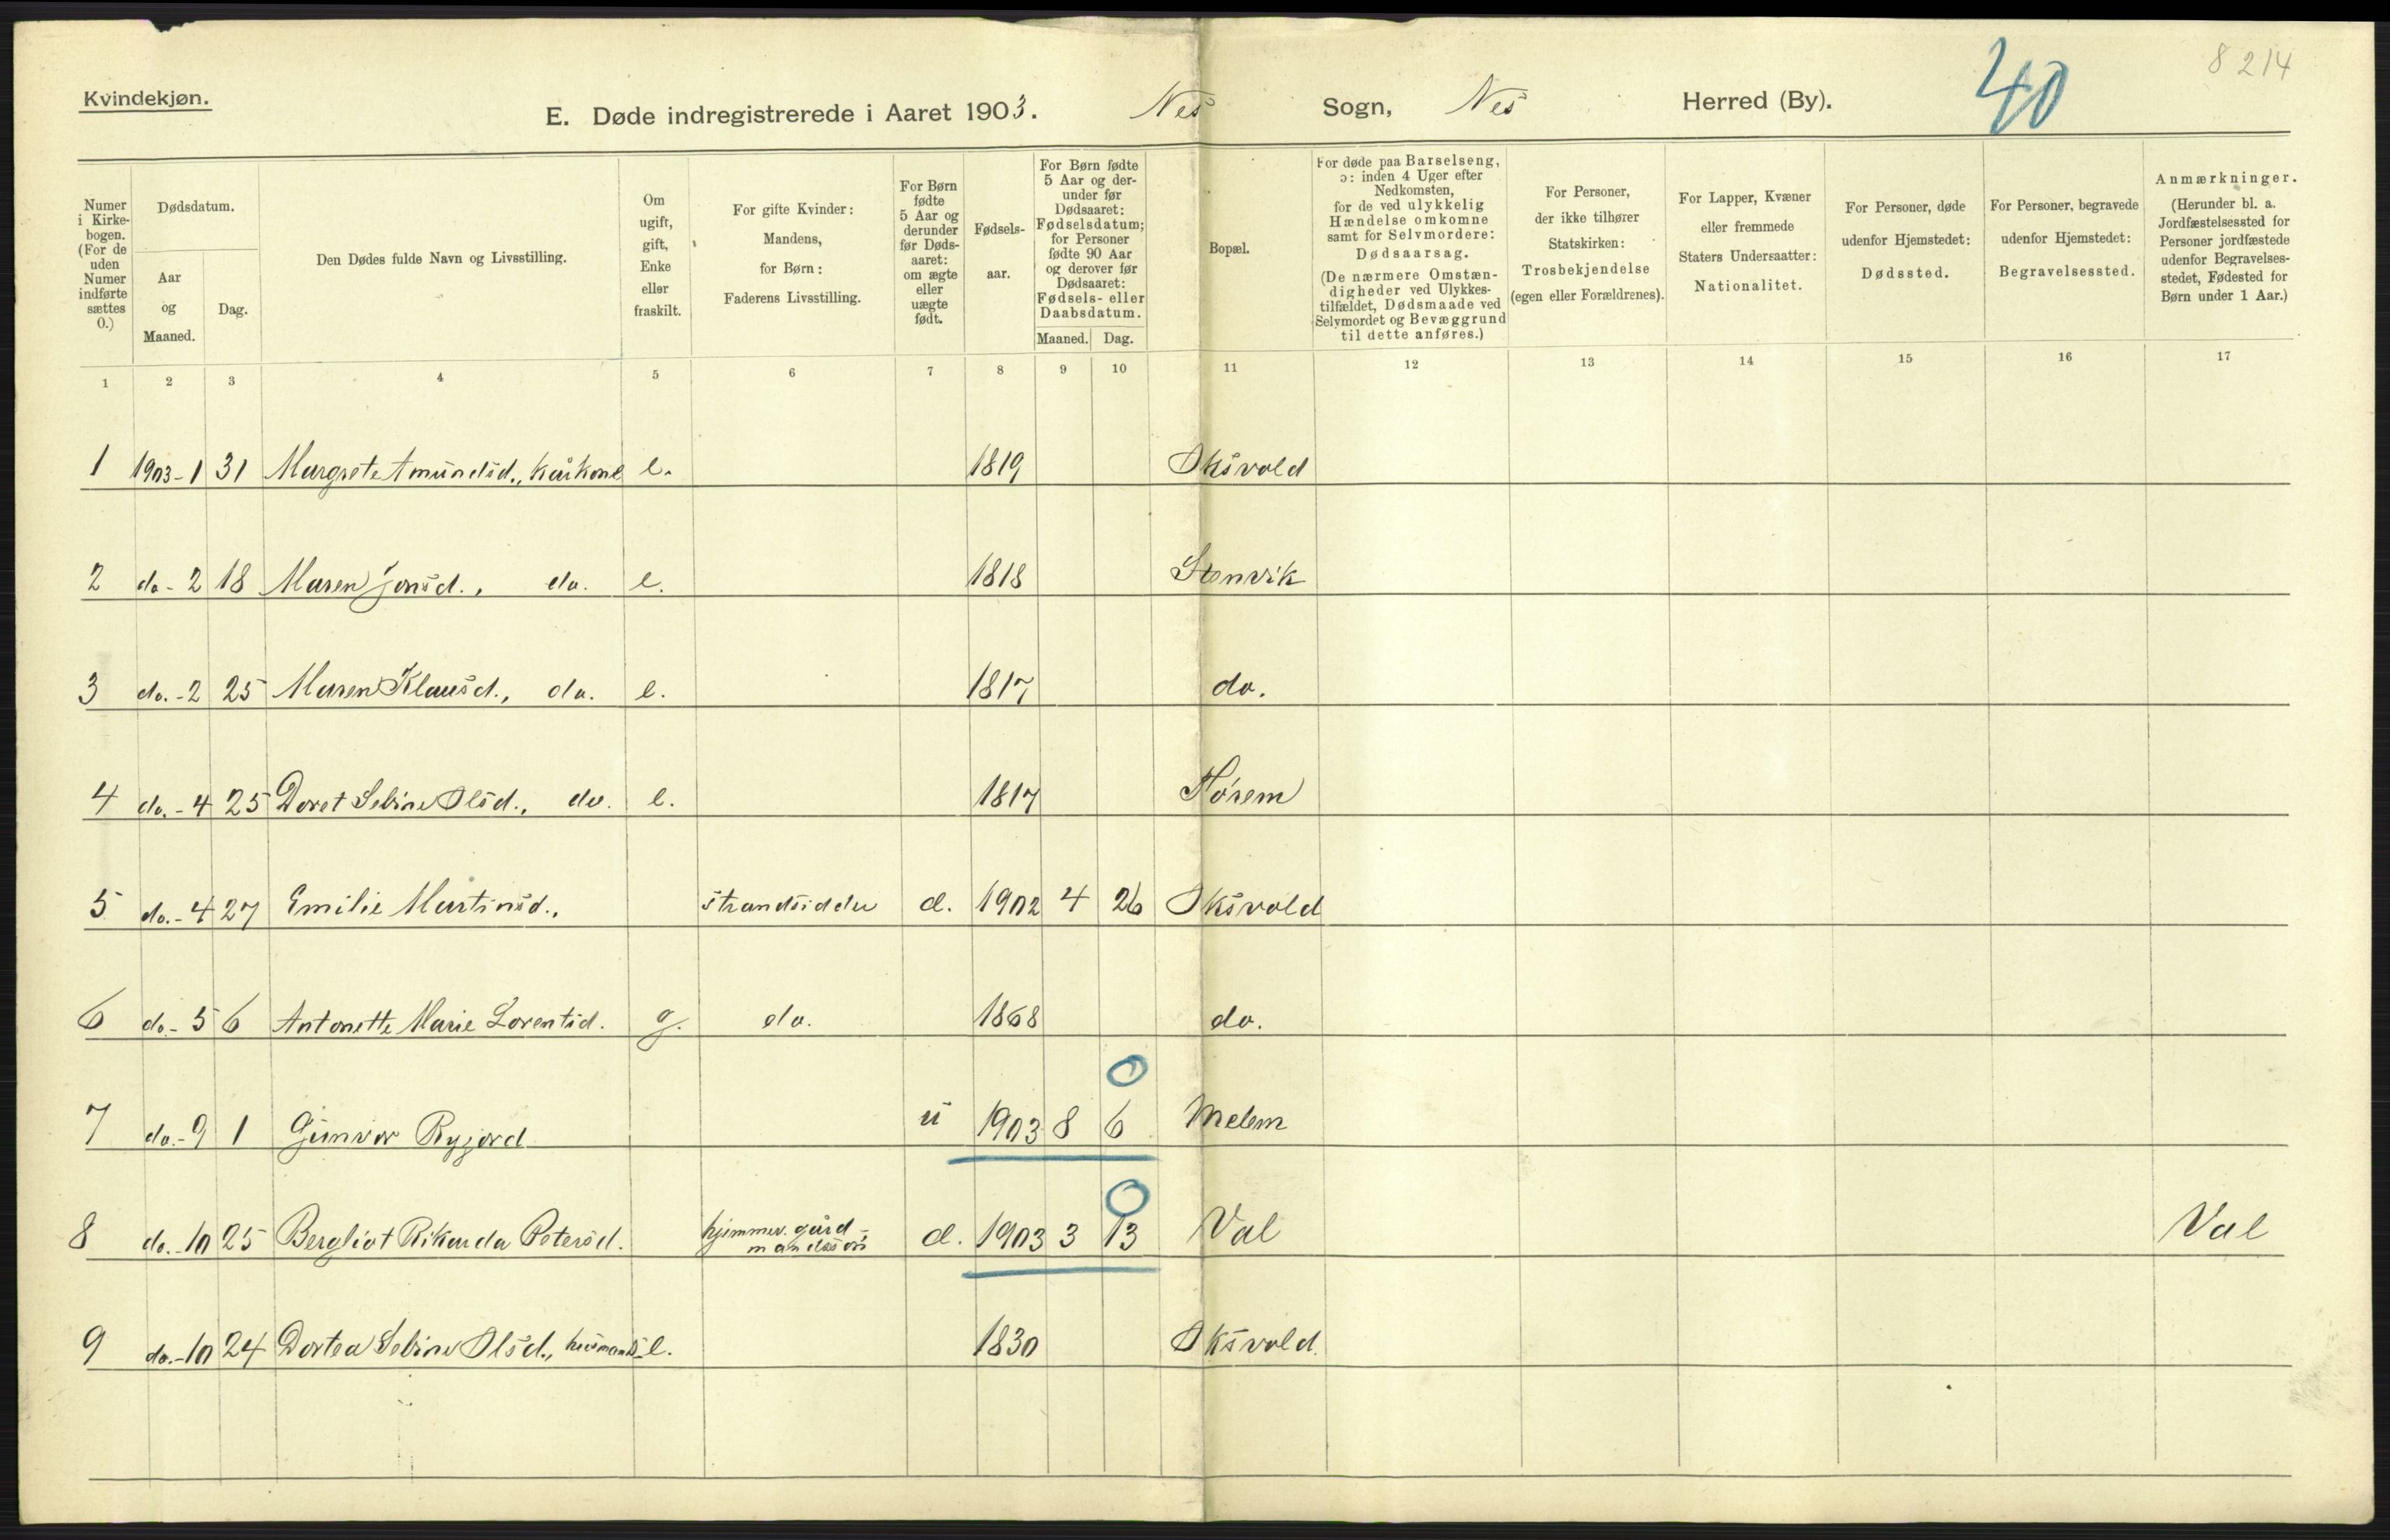 Kvindekjøn.
E. Døde indregistrerede i Aaret 1903. Nes Sogn, Nes Herred (By).
40
8 214
Numer i Kirkebogen. (For de uden Numer indførte sættes 0.)
Dødsdatum.
Aar og Maaned.
Dag.
Den Dødes fulde Navn og Livsstilling.
Om ugift, gift, Enke eller fraskilt.
For gifte Kvinder: Mandens, for Børn: Faderens Livsstilling.
For Børn fødte 5 Aar og derunder før Dødsaaret: om ægte eller uægte født.
Fødselsaar.
For Børn fødte 5 Aar og derunder før Dødsaaret: Fødselsdatum; for Personer fødte 90 Aar og derover før Dødsaaret: Fødsels- eller Daabsdatum.
Maaned. Dag.
Bopæl.
For døde paa Barselseng, ɔ: inden 4 Uger efter Nedkomsten, for de ved ulykkelig Hændelse omkomne samt for Selvmordere: Dødsaarsag. (De nærmere Omstændigheder ved Ulykkestilfældet, Dødsmaade ved Selvmordet og Bevæggrund til dette anføres.)
For Personer, der ikke tilhører Statskirken: Trosbekjendelse (egen eller Forældrenes).
For Lapper, Kvæner eller fremmede Staters Undersaatter: Nationalitet.
For Personer, døde udenfor Hjemstedet: Dødssted.
For Personer, begravede udenfor Hjemstedet: Begravelsessted.
Anmærkninger. (Herunder bl. a. Jordfæstelsessted for Personer jordfæstede udenfor Begravelsesstedet, Fødested for Børn under 1 Aar.)
1 2 3 4 5 6 7 8 9 10 11 12 13 14 15 16 17
1 1903-1 31 Margrete Amundsd., kårkone e. 1819 Oksvold
2 do-2 18 Maren Jonsd., do. e. 1818 Stenvik
3 do.-2 25 Maren Klausd., do. e. 1817 do.
4 do.-4 25 Doret Sebine Olsd., do. e. 1817 Hørem
5 do.-4 27 Emilie Martinsd., strandsidder d. 1902 4 26 Oksvold
6 do-5 6 Antonette Marie Lorentsd. g. do. 1868 do.
0
7 do.-9 1 Gunvor Rygjord u 1903 8 6 Melem
0
8 do.-10 25 Bergliot Rikarda Petersd. hjemmev. gård-mandssøn d. 1903 3 13 Val Val
9 do.-10 24 Dortea Sebine Olsd., husmands e. 1830 Oksvold.